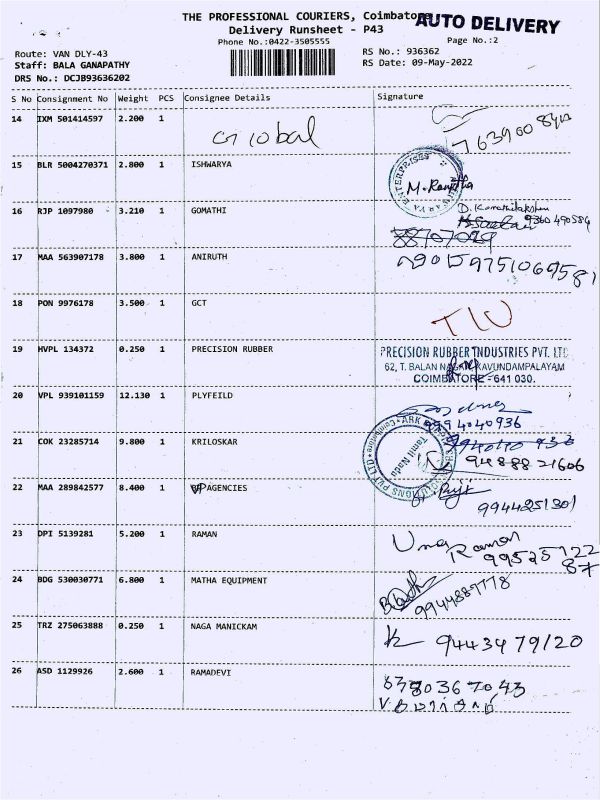 THE PROFESSIONAL COURIERS, Coimbatore
AUTO DELIVERY
Delivery Runsheet - P43
Phone No.:0422-3505555
Page No.:2
Route: VAN DLY-43
RS No.: 936362
Staff: BALA GANAPATHY
RS Date: 09-May-2022
DRS No.: DCJB93636202
S No Consignment No Weight PCS Consignee Details Signature
14 IXM 501414597 2.200 1 Global
15 BLR 5004270371 2.800 1 ISHWARYA
ENTERPRISES
16 RJP 1097980 3.210 1 GOMATHI
9360490584
17 MAA 563907178 3.800 1 ANIRUTH
18 PON 9976178 3.500 1 GCT
19 HVPL 134372 0.250 1 PRECISION RUBBER
PRECISION RUBBER INDUSTRIES PVT. LTD
62, T. BALAN NAGAR, KAVUNDAMPALAYAM
COIMBATORE - 641 030.
20 VPL 939101159 12.130 1 PLYFEILD
9994040936
21 COK 23285714 9.800 1 KRILOSKAR
Tamil Nadu
9488821606
22 MAA 289842577 8.400 1 VP AGENCIES
9944251301
23 DPI 5139281 5.200 1 RAMAN
Uma Raman
9952512287
24 BDG 530030771 6.800 1 MATHA EQUIPMENT
9944887778
25 TRZ 275063888 0.250 1 NAGA MANICKAM
9443479120
26 ASD 1129926 2.600 1 RAMADEVI
6380367043